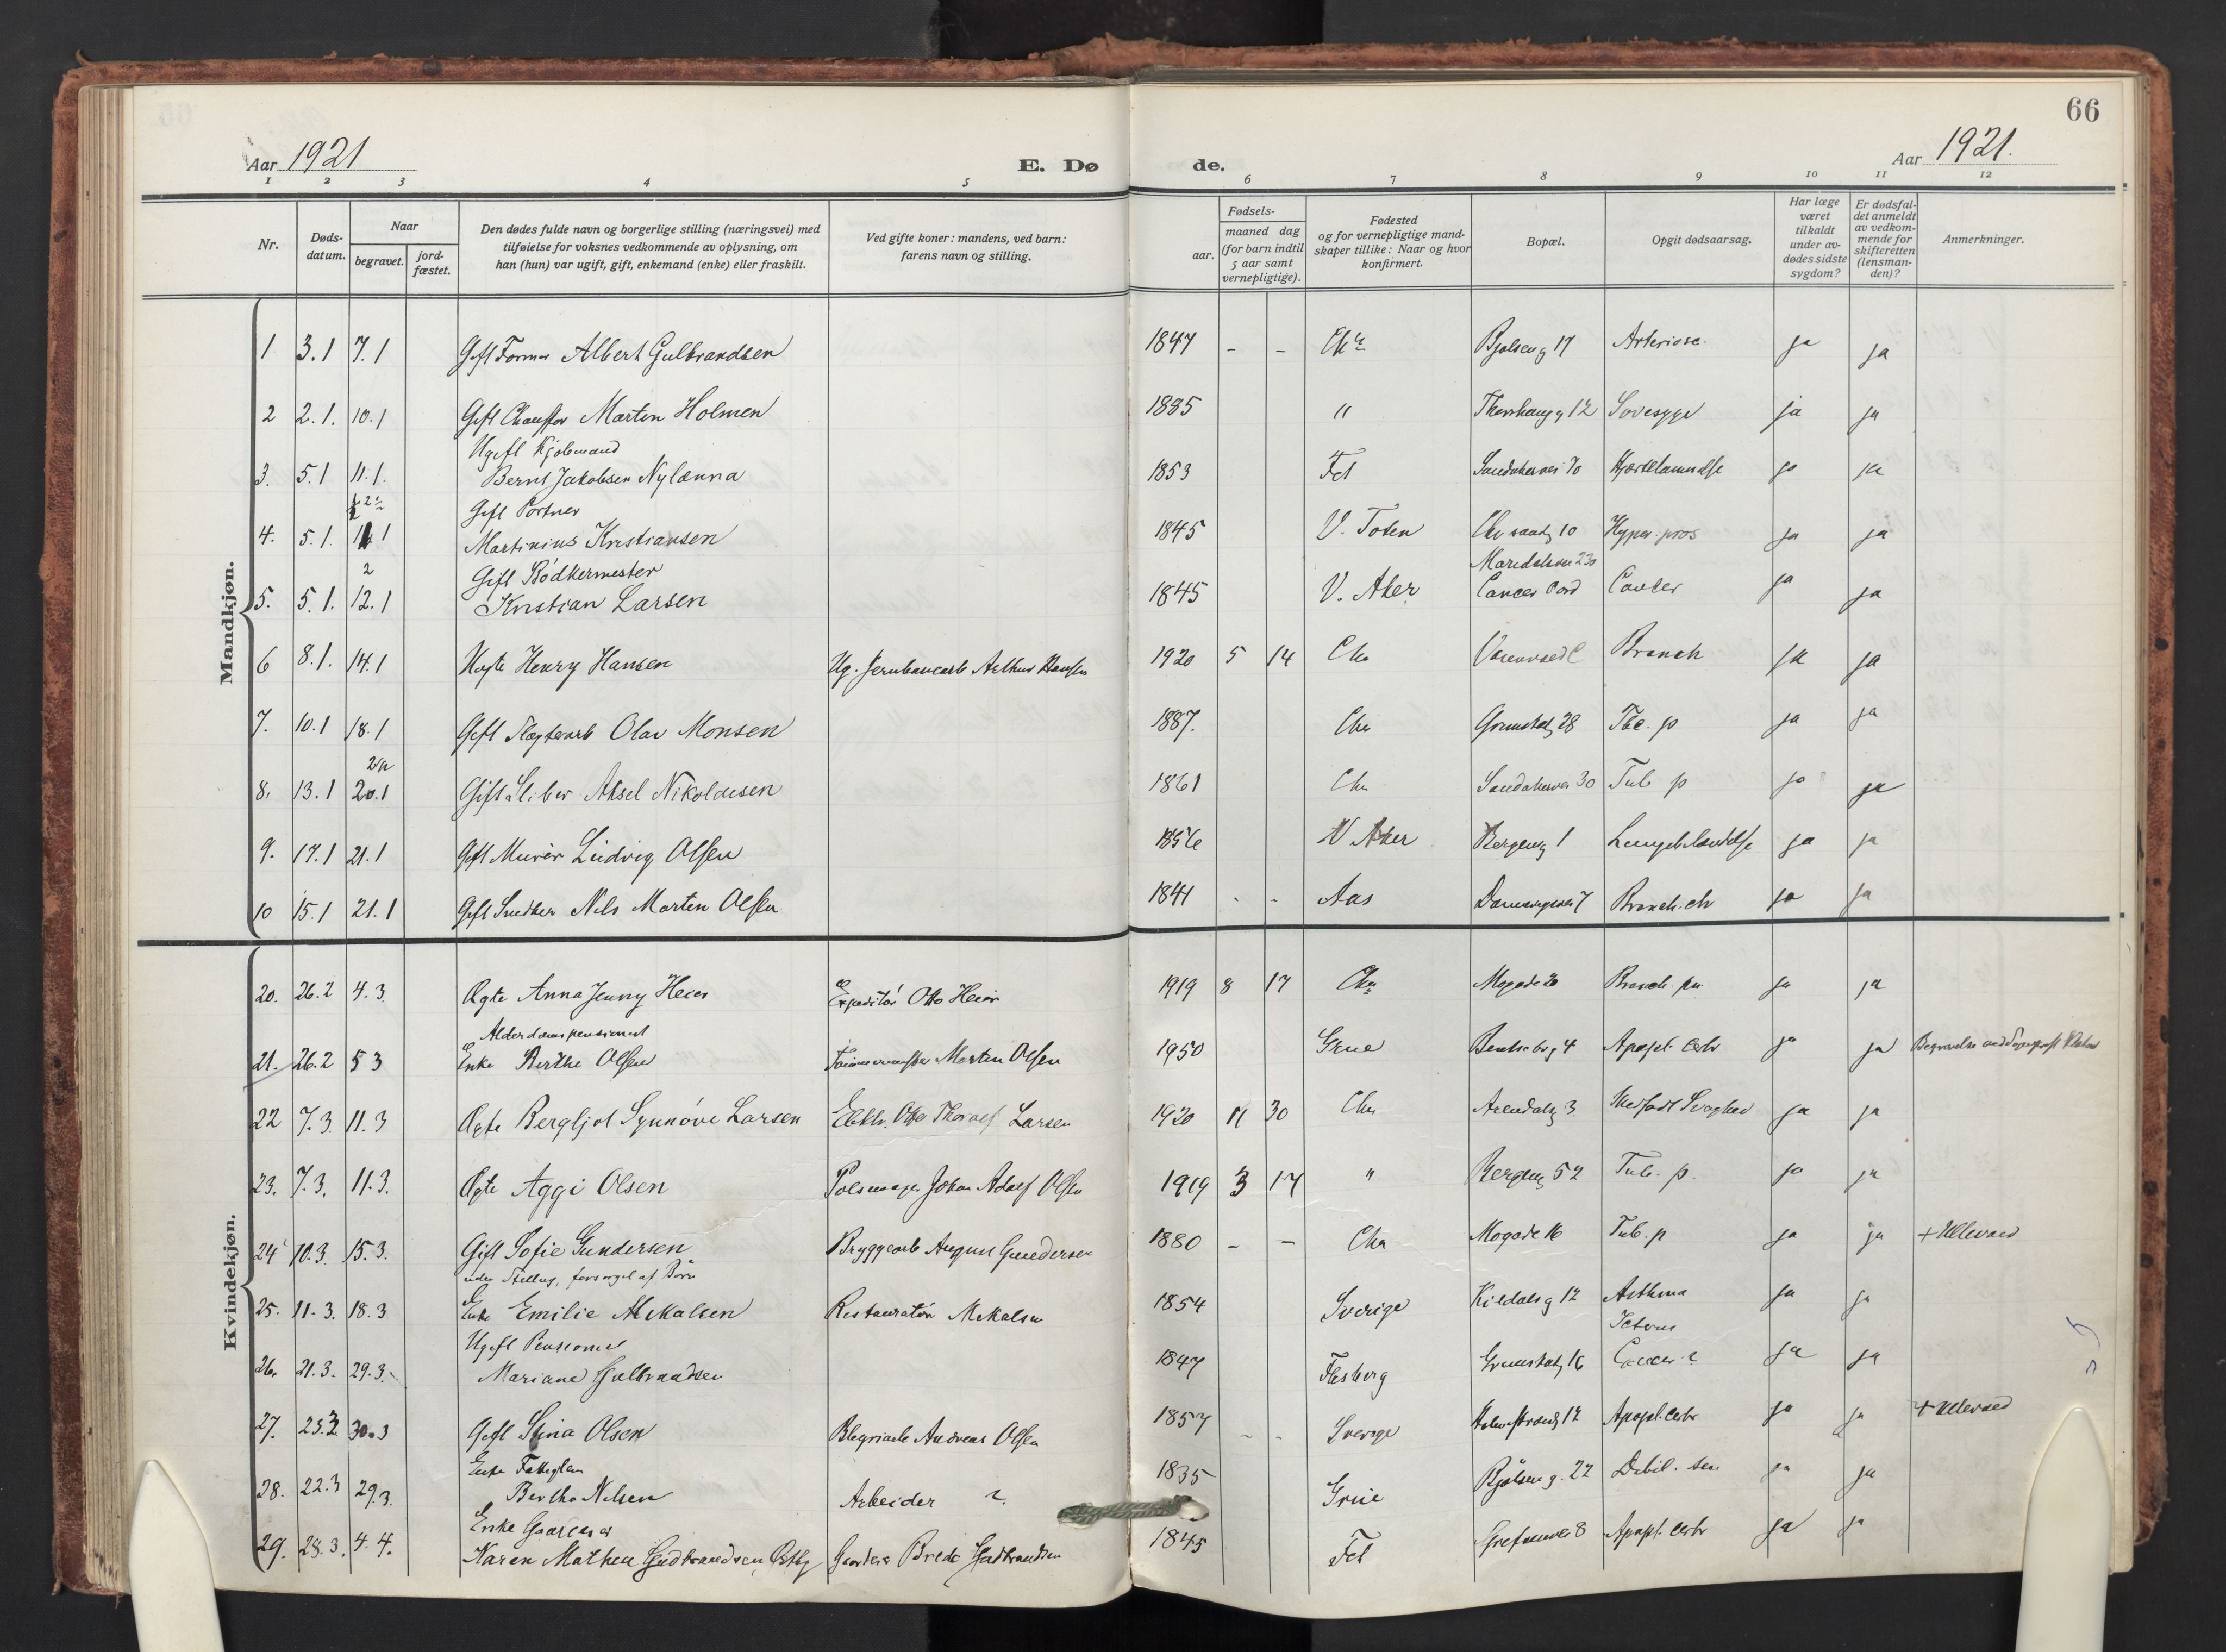 66
Aar 1921
E. Dø de.
Aar 1921.
1 2 3 4 5 6 7 8 9 10 11 12
Nr.
Døds-datum.
Naar
begravet.
jord-fæstet.
Den dødes fulde navn og borgerlige stilling (næringsvei) med
tilføielse for voksnes vedkommende av oplysning, om
han (hun) var ugift, gift, enkemand (enke) eller fraskilt.
Ved gifte koner: mandens, ved barn:
farens navn og stilling.
Fødsels-
aar.
maaned dag
(for barn indtil
5 aar samt
vernepligtige).
Fødested
og for vernepligtige mand-
skaper tillike: Naar og hvor
konfirmert.
Bopæl.
Opgit dødsaarsag.
Har læge
været
tilkaldt
under av-
dødes sidste
sygdom?
Er dødsfal-
det anmeldt
av vedkom-
mende for
skifteretten
(lensman-
den)?
Anmerkninger.
Mandkjøn.
1 3.1 7.1 Gift Former Albert Gulbrandsen 1847 - - Chr Bjølseng 17 Arteriosc. ja ja
2 2.1. 10.1 Gift Chauffør Marten Holmen 1885 " 12 Sovesyge ja ja
Ugift Kjøbmand
3. 5.1 11.1. Bernt Jakobsen Nylænna 1853 Fet Sandakervei 70 Hjertelammelse ja ja
Gift Portner
4. 5.1. 1 Martinius Kristiansen 1845 V. Toten 10 Hyper. pros ja ja
2 Gift Bødkermester Maridalsvei 230
5. 5.1. 12.1 Kristian Larsen 1845 V. Aker Cancer ja ja
6 8.1. 14.1 Uegte Henry Hansen Ug. Jernbanearb Arthur Hansen 1920 5 14 Cha Bronch ja ja
7. 10.1 18.1 Gift Olav Monsen 1887. Chr Grimstadg 28 Tbc. p ja ja
8. 13.1 20.1 Gift Sliber Aksel Nikolaisen 1861 Chr Sandakervei 30 Tub p ja ja
9. 17.1 21.1 Gift Murer Ludvig Olsen 1856 V Aker Bergeng 1 Lungebetændelse ja ja
10 15.1 21.1 Gift Snedker Nils Morten Olsen 1841 - - Aas 7 Bronch. chr ja ja
Kvindekjøn.
20. 26.2 4.3 Ægte Anna Jenny Heier Expeditør Otto Heier 1919 8 17 Chr Mogade 20 Bronch. pn ja ja
Alderdomspensionist
21. 26.2 5 3 Enke Berthe Olsen Tømmermester Morten Olsen 1950 Grue 4 Apopl. cerbr ja ja
22 7.3. 11.3 Ægte Bergljot Synnøve Larsen Elektr. Otto Thoralf Larsen 1920 11 30 Chr Arendalg 3. Medfødt Svaghed ja ja
23. 7.3. 11.3. Ægte Aggi Olsen Pølsemager Johan Adolf Olsen 1919 3 17 " Bergeng 52 Tub. p. ja ja
24 10.3. 15.3. Gift Sofie Gundersen Bryggearb August Gundersen 1880 - - Cha Mogade 16 Tub. p ja ja + Ullevaal
uden Stilling, forsørget af Børn
25. 11.3. 18.3 Enke Emilie Mikalsen Restauratør Mikalsen 1854 Sverige Kildalsg 12 Asthma ja ja
Ugift Pensionist Icterus
26. 21.3. 29.3. Mariane Gulbrandsen 1847 Flesberg Grimstadg 16 Cancer ja ja
27. 25.3 30.3 Gift Stina Olsen Andreas Olsen 1857 - - Sverige Holmestrandg 12 Apopl. cerbr ja ja + Ullevaal
Enke Fattiglem
28. 22.3 29.3. Berthe Nilsen Arbeider 1835 Grue Bjølseng. 22 Debil. sen ja ja
Enke
29. 28.3. 4.4. Karen Mathea Gudbrandsen Østby Brede Gudbrandsen 1845 Fet Grefsenvei 8 Apopl. cerbr ja ja